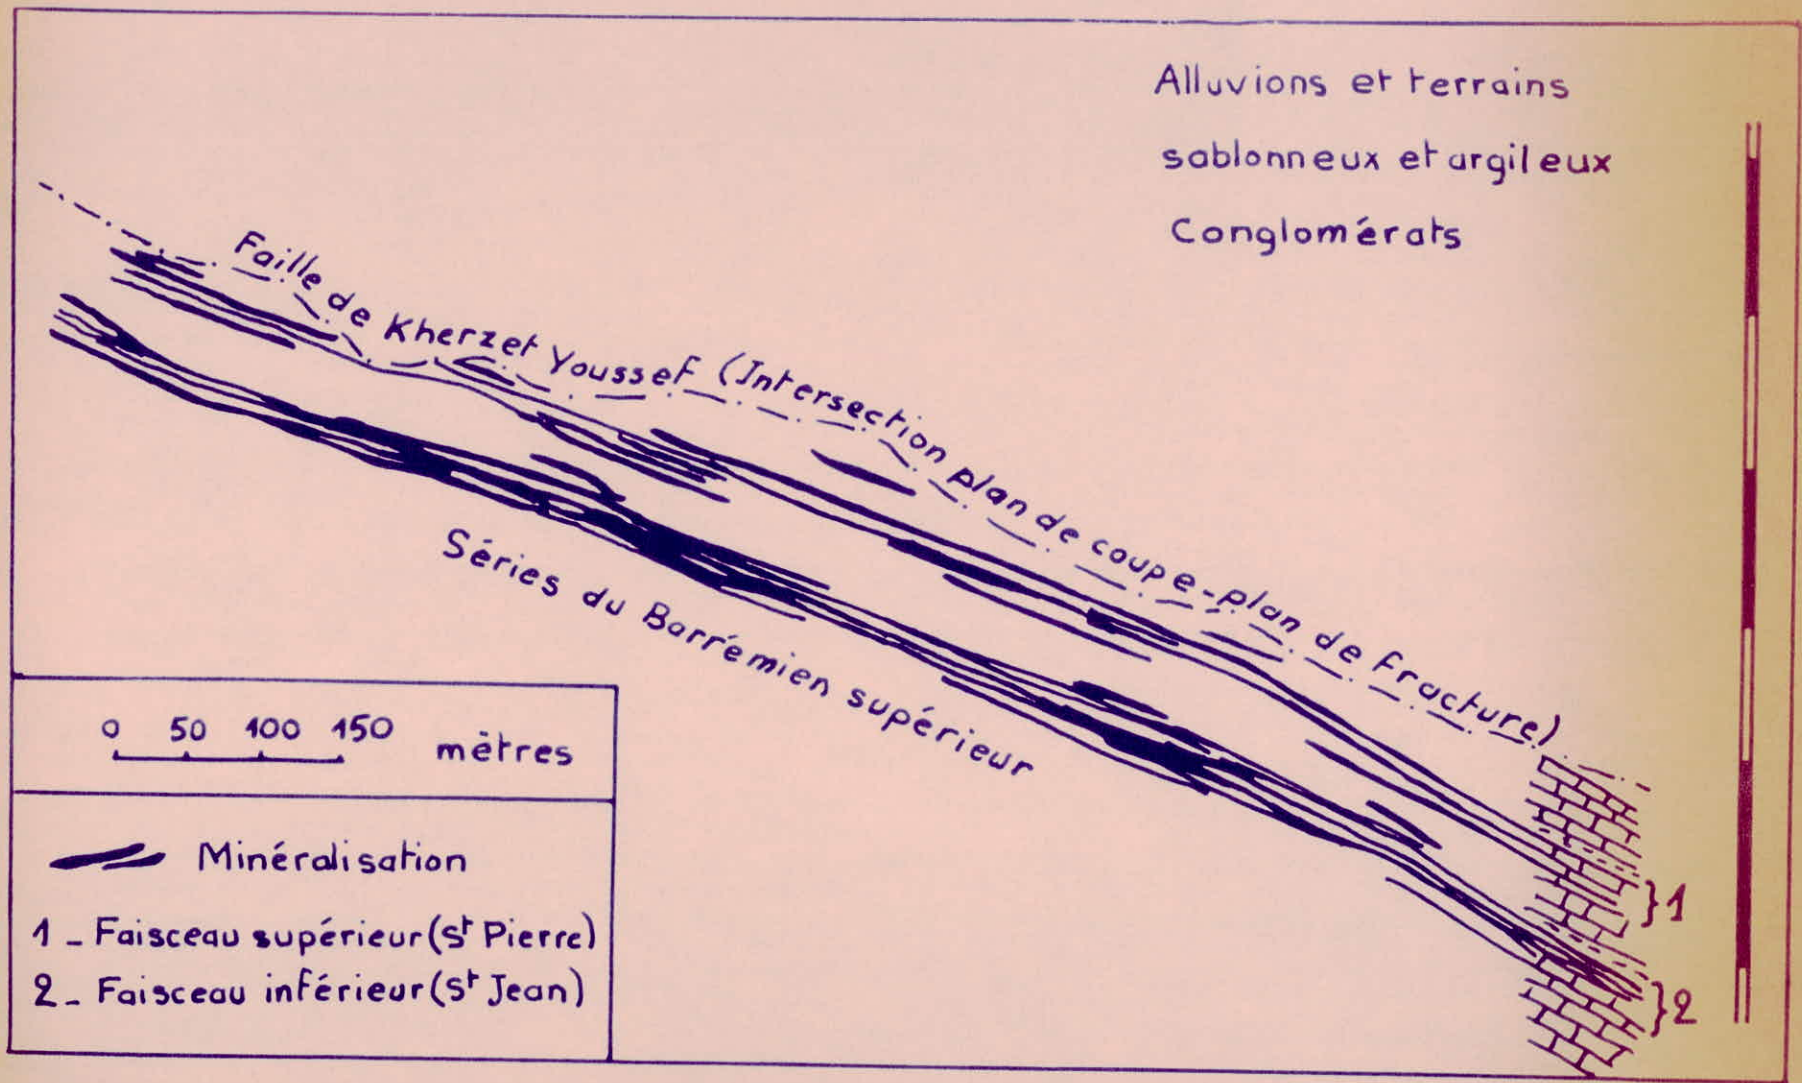 Alluvions et terrains
sablonneux et argileux
Conglomérats
Faille de Kherzet Youssef (Intersection plan de coupe-plan de fracture)
Séries du Barrémien supérieur
0 50 100 150 mètres
Minéralisation
1 - Faisceau supérieur (St Pierre)
2 - Faisceau inférieur (St Jean)
}1
}2